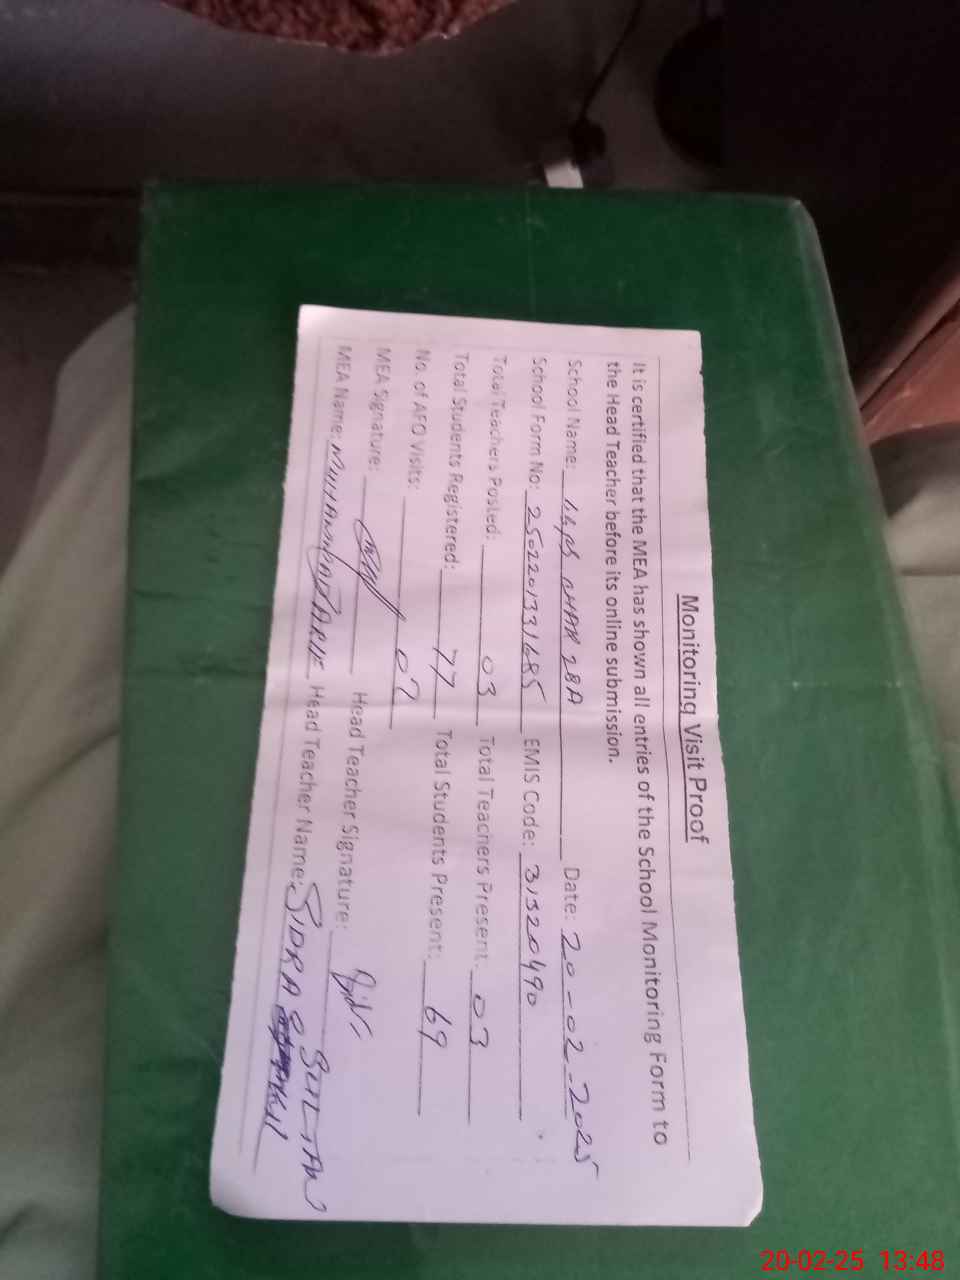 Monitoring Visit Proof
It is certified that the MEA has shown all entries of the School Monitoring Form to
the Head Teacher before its online submission.
School Name: CHAK 28A Date: 20-02-2025
School Form No: 2502201331685 EMIS Code: 31320490
Total Teachers Posted: 03 Total Teachers Present: 03
Total Students Registered: 77 Total Students Present: 69
No. of AEO Visits: 02
MEA Signature: Head Teacher Signature:
MEA Name: MUHAMMAD ARIF Head Teacher Name: SIDRA SULTAN
20-02-25 13:48